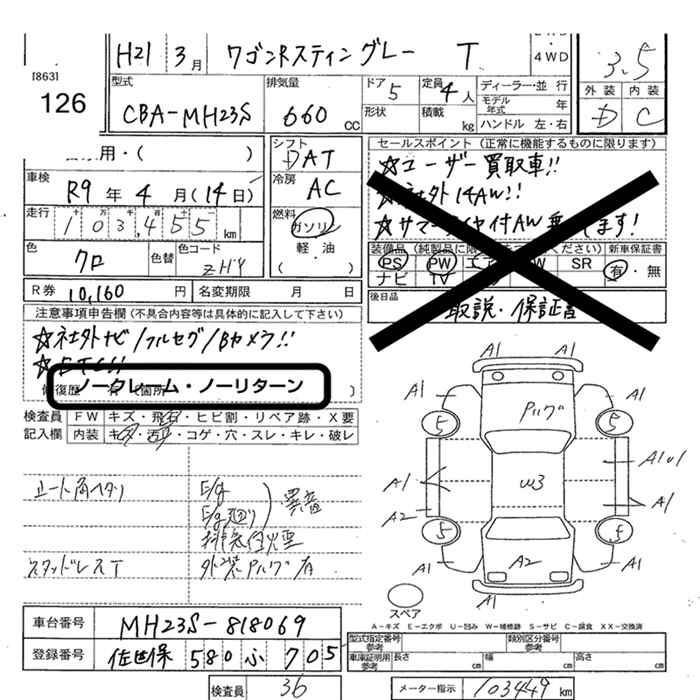 H21 3月 ワゴンRスティングレー T 4WD
[863]
126
型式 CBA-MH23S
排気量 660 cc
ドア 5
形状
定員 4人
積載 kg
ディーラー・並行
モデル年式 年
ハンドル 左・右
3.5
外装 D
内装 C
用・( )
車検 R9年4月(14日)
走行 103,455 km
色 クロ 色替
色コード ZHY
シフト DAT
冷房 AC
燃料 ガソリン
軽・油
( )
セールスポイント (正常に機能するものに限ります)
☆ユーザー買取車!!
☆社外14AW!!
☆サマータイヤ付AW
装備品 (純製品に限
ください) 新車保証書
PS PW W SR 有・無
ナビ TV
後日品 取説・保証書
R券 10,160円 名変期限 月 日
注意事項申告欄 (不具合内容等は具体的に記入して下さい)
☆社外ナビ/フルセグ/Bカメラ!!
☆ETC!!
修復歴
ノークレーム・ノーリターン
検査員記入欄
FW キズ・飛石・ヒビ割・リペア跡・X要
内装 キズ・汚れ・コゲ・穴・スレ・キレ・破レ
シート角ヘタリ
E/g
E/g廻り
異音
排気白煙
スタッドレスT
外装Pハゲ有
A1 A1
A1 A1
Pハゲ
5 5
W3
A1 A1
A2 A1
5 5
A2
A1 A1
スペア
A-キズ E-エクボ U-凹み W-補修跡 S-サビ C-腐食 XX-交換済
車台番号 MH23S-818069
登録番号 佐世保 580 ふ 705
型式指定番号 参考
類別区分番号 参考
車庫証明用 参考 長さ cm 幅 cm 高さ cm
検査員 36
メーター指示 103449 km